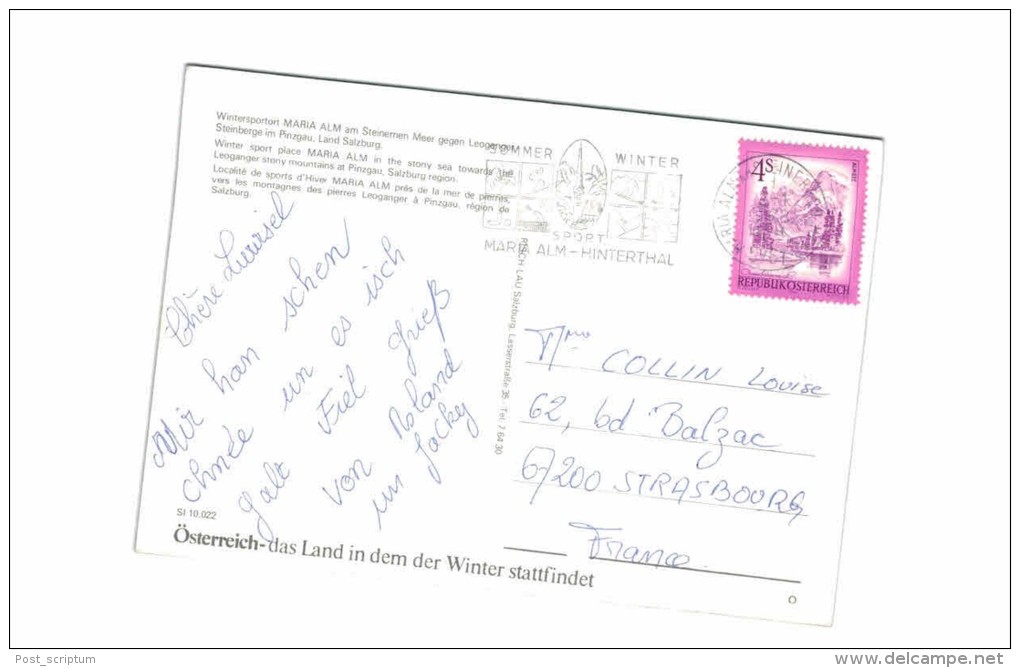 Wintersportort MARIA ALM am Steinernen Meer gegen Leoganger
Steinberge im Pinzgau, Land Salzburg.
Winter sport place MARIA ALM in the stony sea towards the
Leoganger stony mountains at Pinzgau, Salzburg region.
Localité de sports d'Hiver MARIA ALM près de la mer de pierres,
vers les montagnes des pierres Leoganger à Pinzgau, région de
Salzburg.
SOMMER WINTER
SPORT
MARIA ALM – HINTERTHAL
4S
REPUBLIK ÖSTERREICH
Chère Luwisel
Mir han schen
chnée un es isch
galt Fiel Grieß
von Roland
un Jacky
RISCH-LAU Salzburg, Lasserstraße 35 - Tel. 7 64 30
Mme COLLIN Louise
62, bd Balzac
67200 STRASBOURG
France
SI 10.022
Österreich - das Land in dem der Winter stattfindet
O
Post_scriptum
delcampe.net